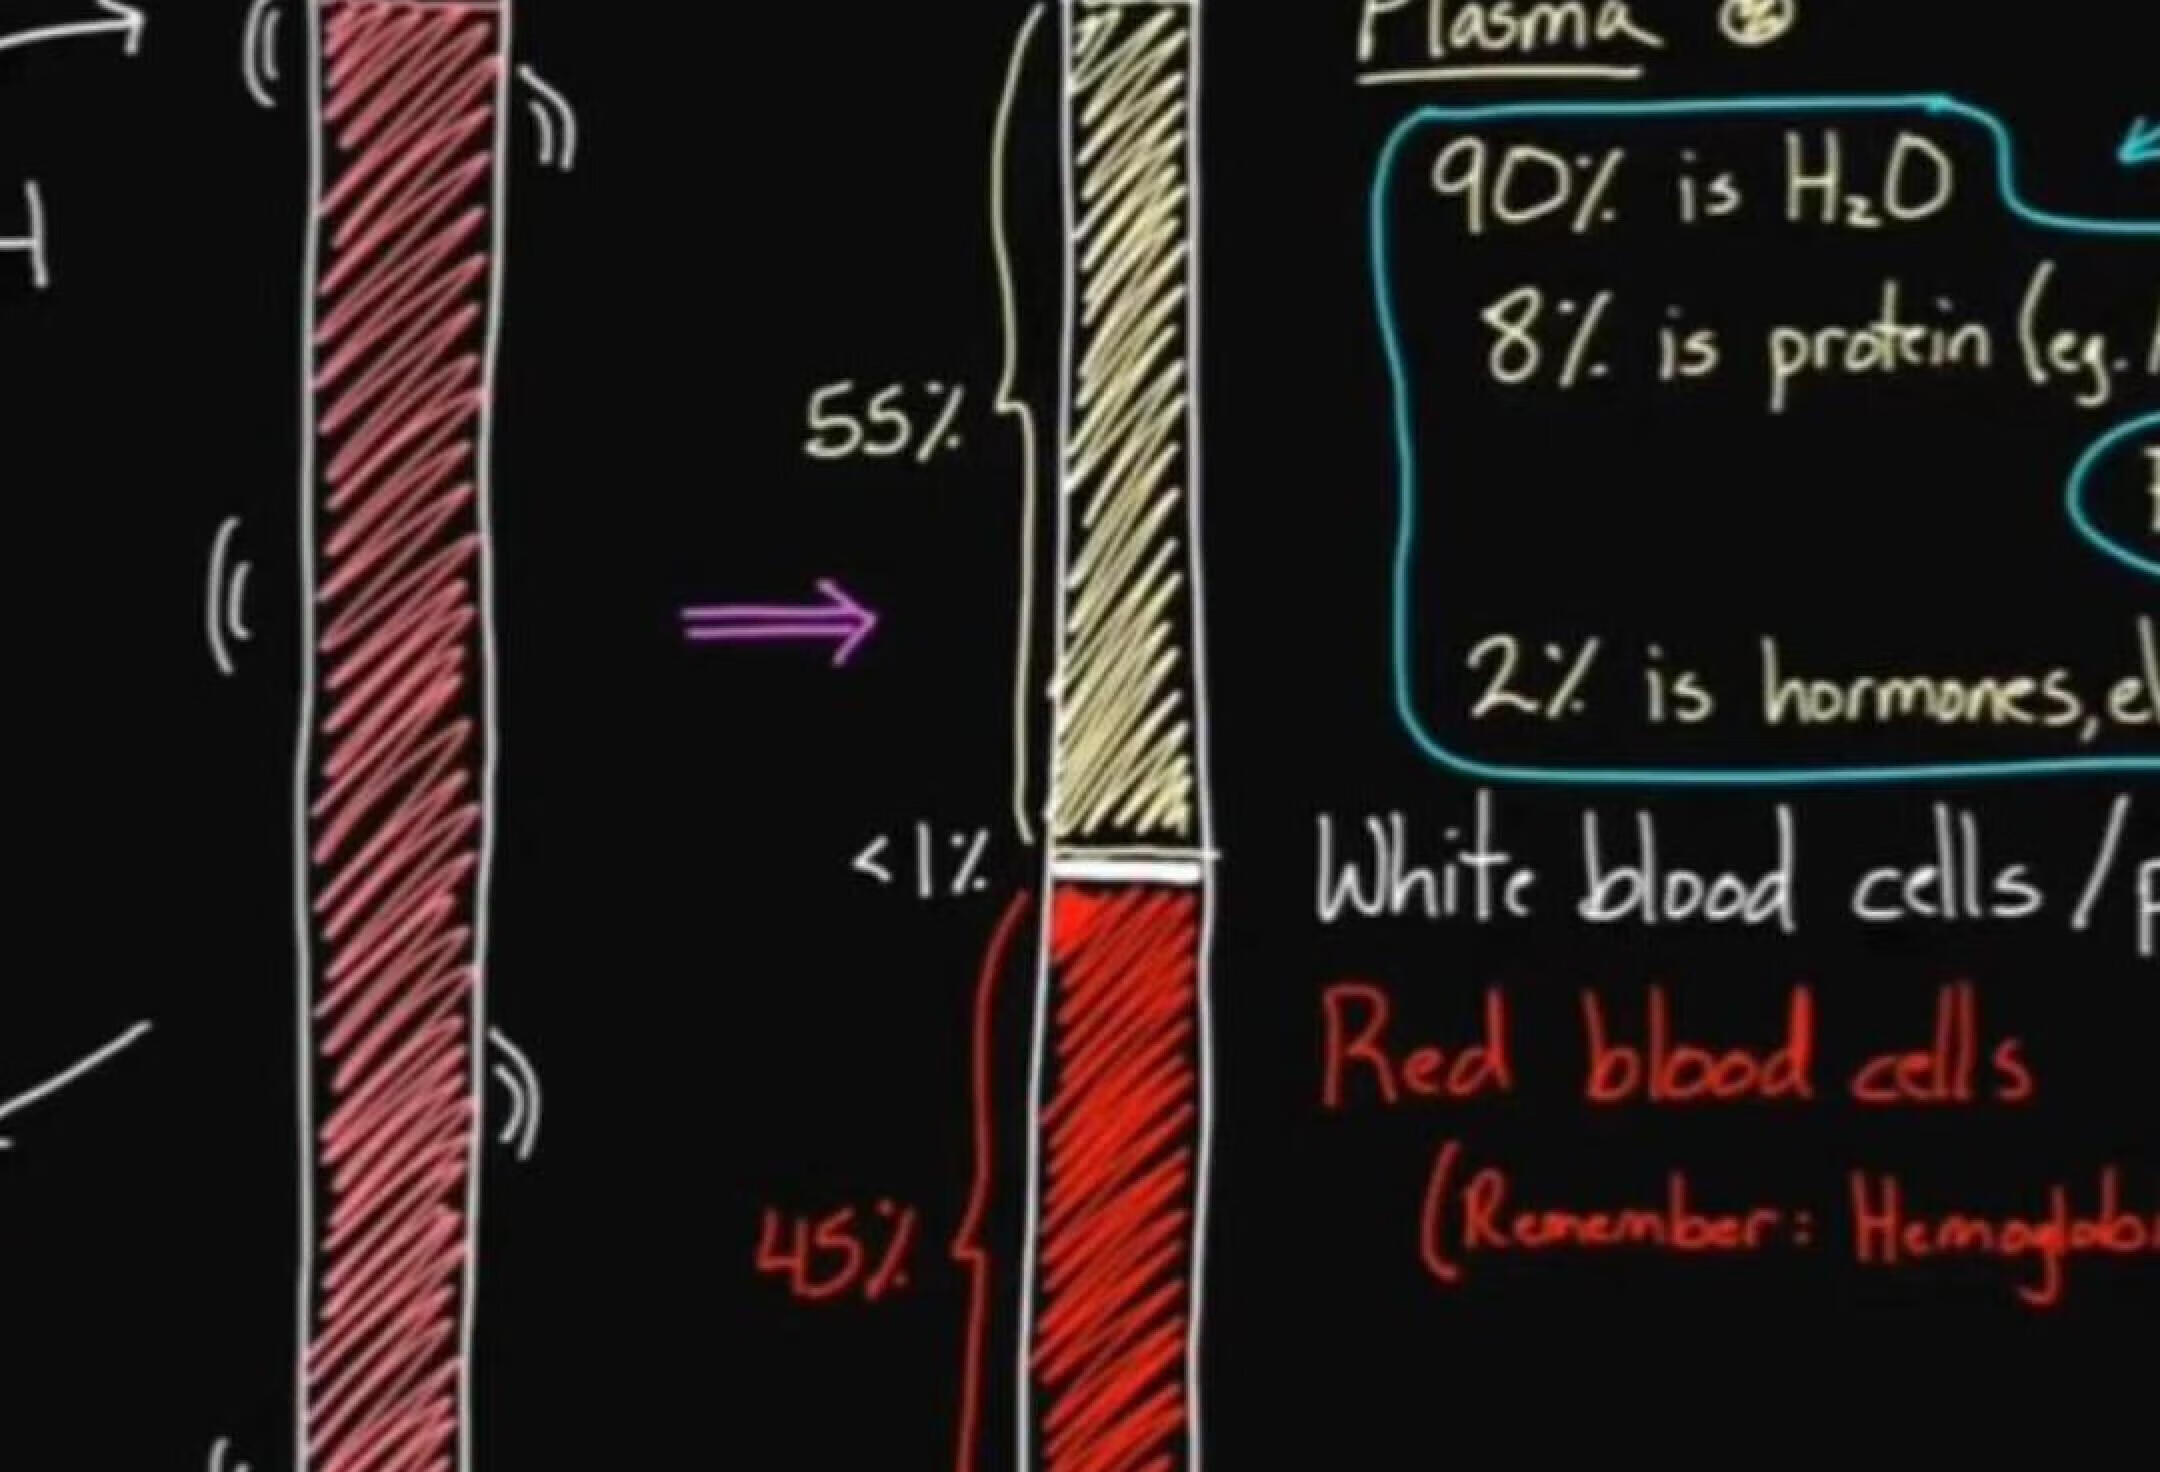 Plasma
90% is H₂O
8% is protein (eg.
55%
2% is hormones,
<1%
White blood cells /
Red blood cells
45%
(Remember: Hemoglob